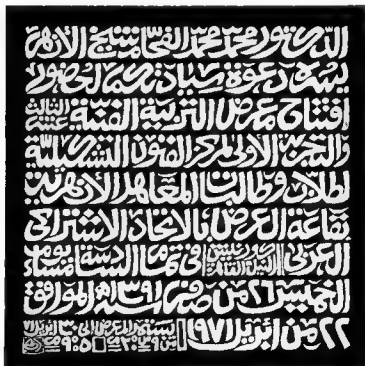 الدكتور محمد محمد الفحام شيخ الأزهر
يسره دعوة سيادتكم لحضور
افتتاح معرض التربية الفنية الثالث عشر
والتجربة الأولى لمركز الفنون التشكيلية
لطلاب وطالبات المعاهد الأزهرية
بقاعة العرض بالاتحاد الاشتراكى
العربى كورنيش النيل القاهرة فى تمام السادسة مساء يوم
الخميس ٢٦ من صفر سنة ١٣٩١هـ الموافق
٢٢ من ابريل ١٩٧١ يستمر المعرض الى ٣٠ ابريل